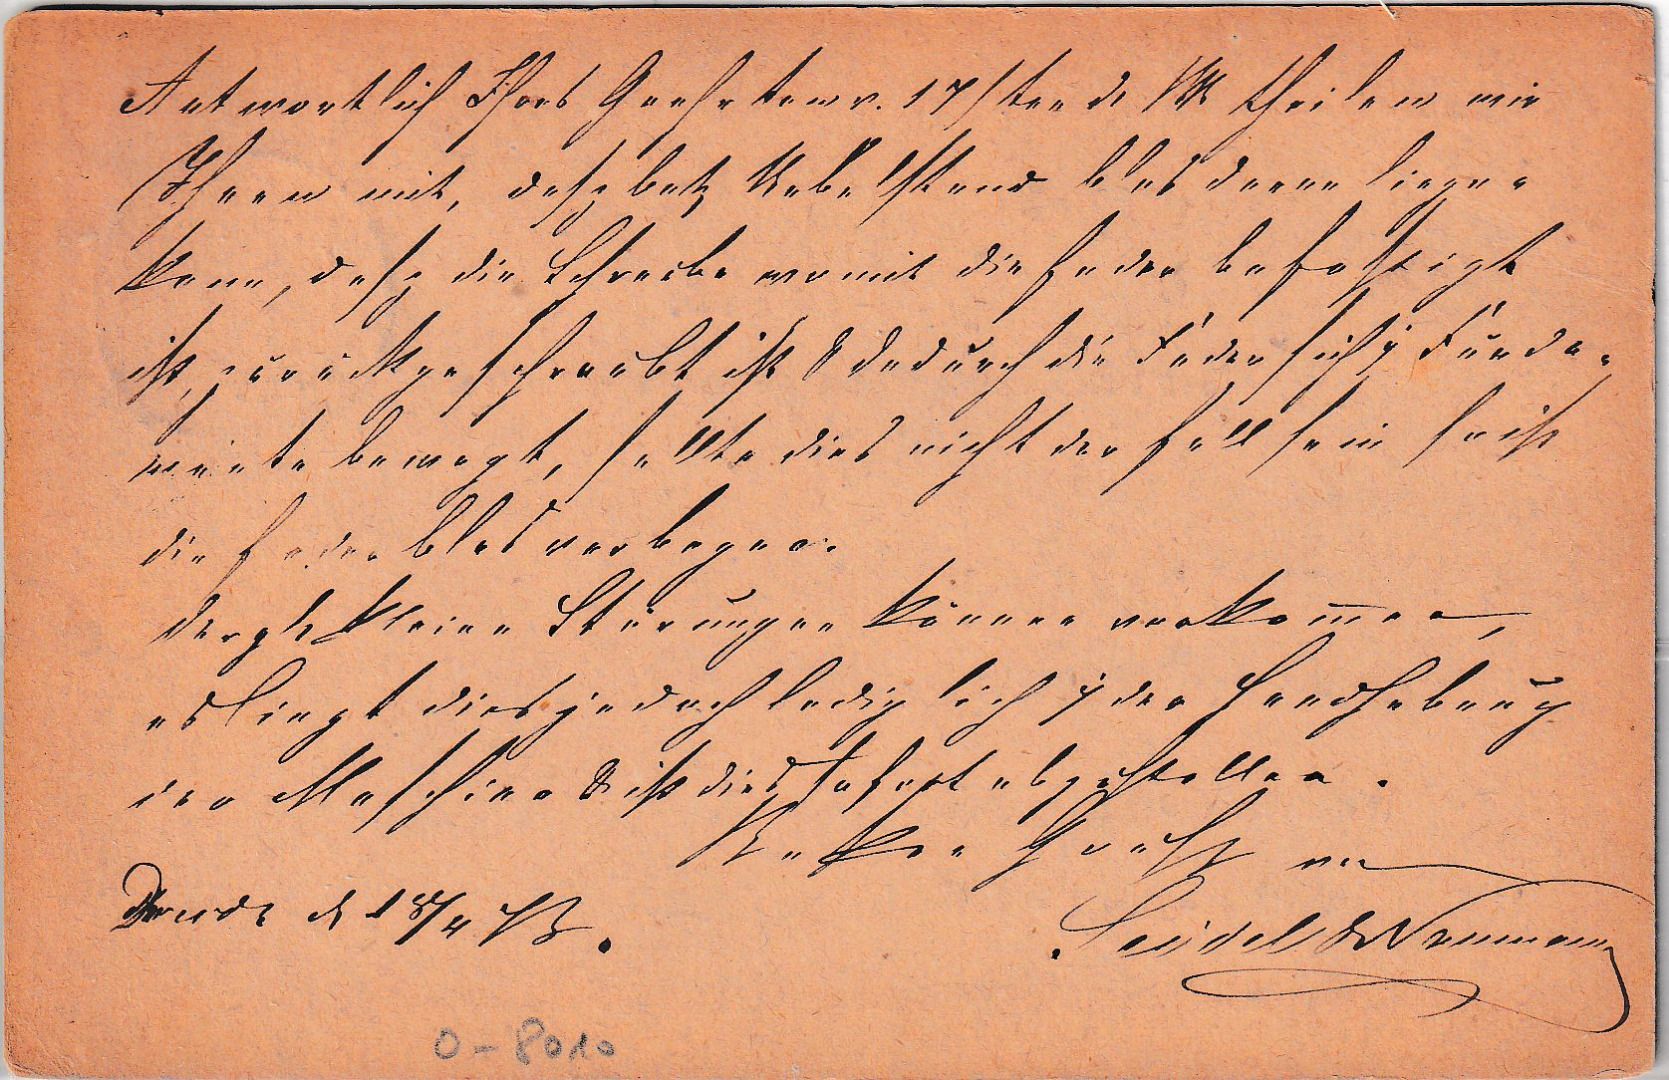 Antwortlich Ihres Geehrten v. 17/ten d. M. theilen wir
Ihnen mit, dass betz Uebelstand blos daran liegen
kann, dass die Schraube womit die Feder befestigt
ist, zurückgeschraubt ist & dadurch die Feder sich i Funda-
mente bewegt, sollte dies nicht der Fall sein so ist
die Feder blos verbogen.
dergl. kleine Störungen können vorkommen,
es liegt dies jedoch lediglich i der Handhabung
der Maschine & ist dies sofort abzustellen.
Gruss von
Dresd. d. 18/4 73.
Seidel & Naumann
0-8010